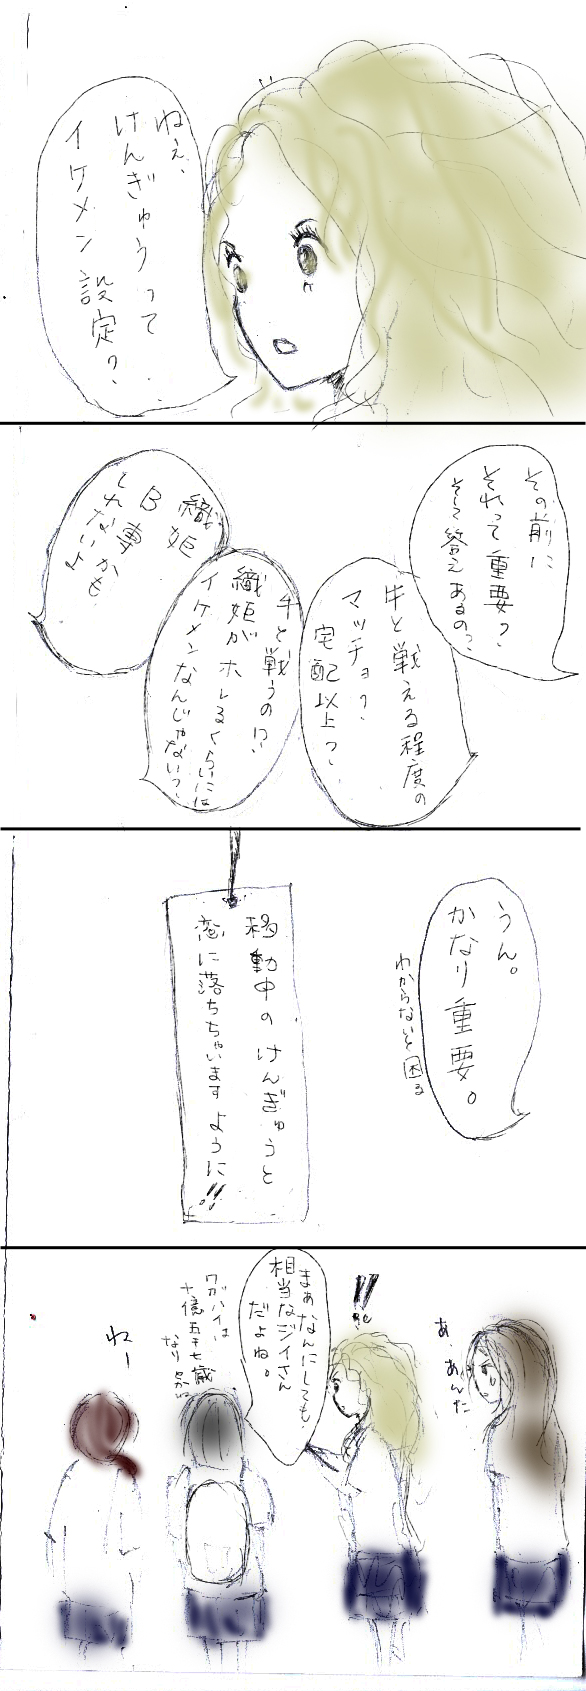 ねぇ、
けんぎゅうって
イケメン設定？
その前に
それって重要？
そして答えあるの？
牛と戦える程度の
マッチョ？
宅配以上？
牛と戦うの！？
織姫がホレるくらいには
イケメンなんじゃない？
織姫
B専かも
しれないよ
うん。
かなり重要。
わからないと困る
移動中のけんぎゅうと
恋に落ちちゃいますように!!
あ、あんた
!!
まぁなんにしても
相当なジイさん
だよね。
ワガハイは
十億五千七歳
なり
ねー